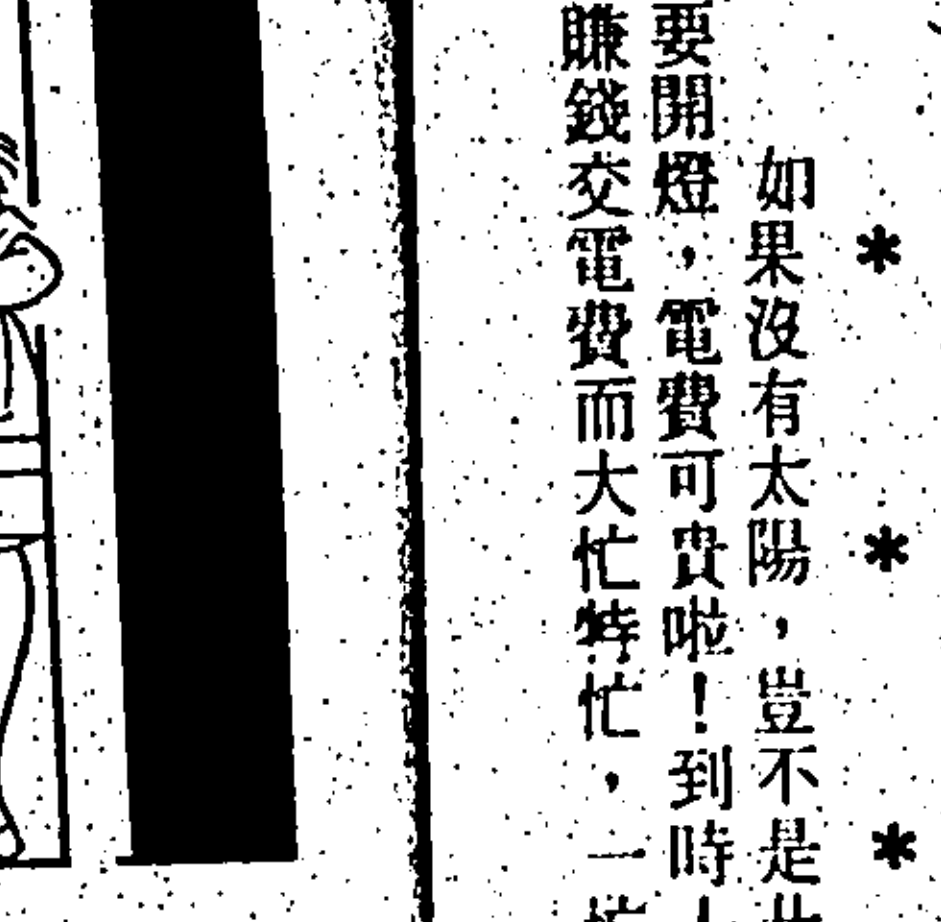 ＊　＊　＊
如果沒有太陽，豈不是
要開燈，電費可貴啦！到時
賺錢交電費而大忙特忙，一